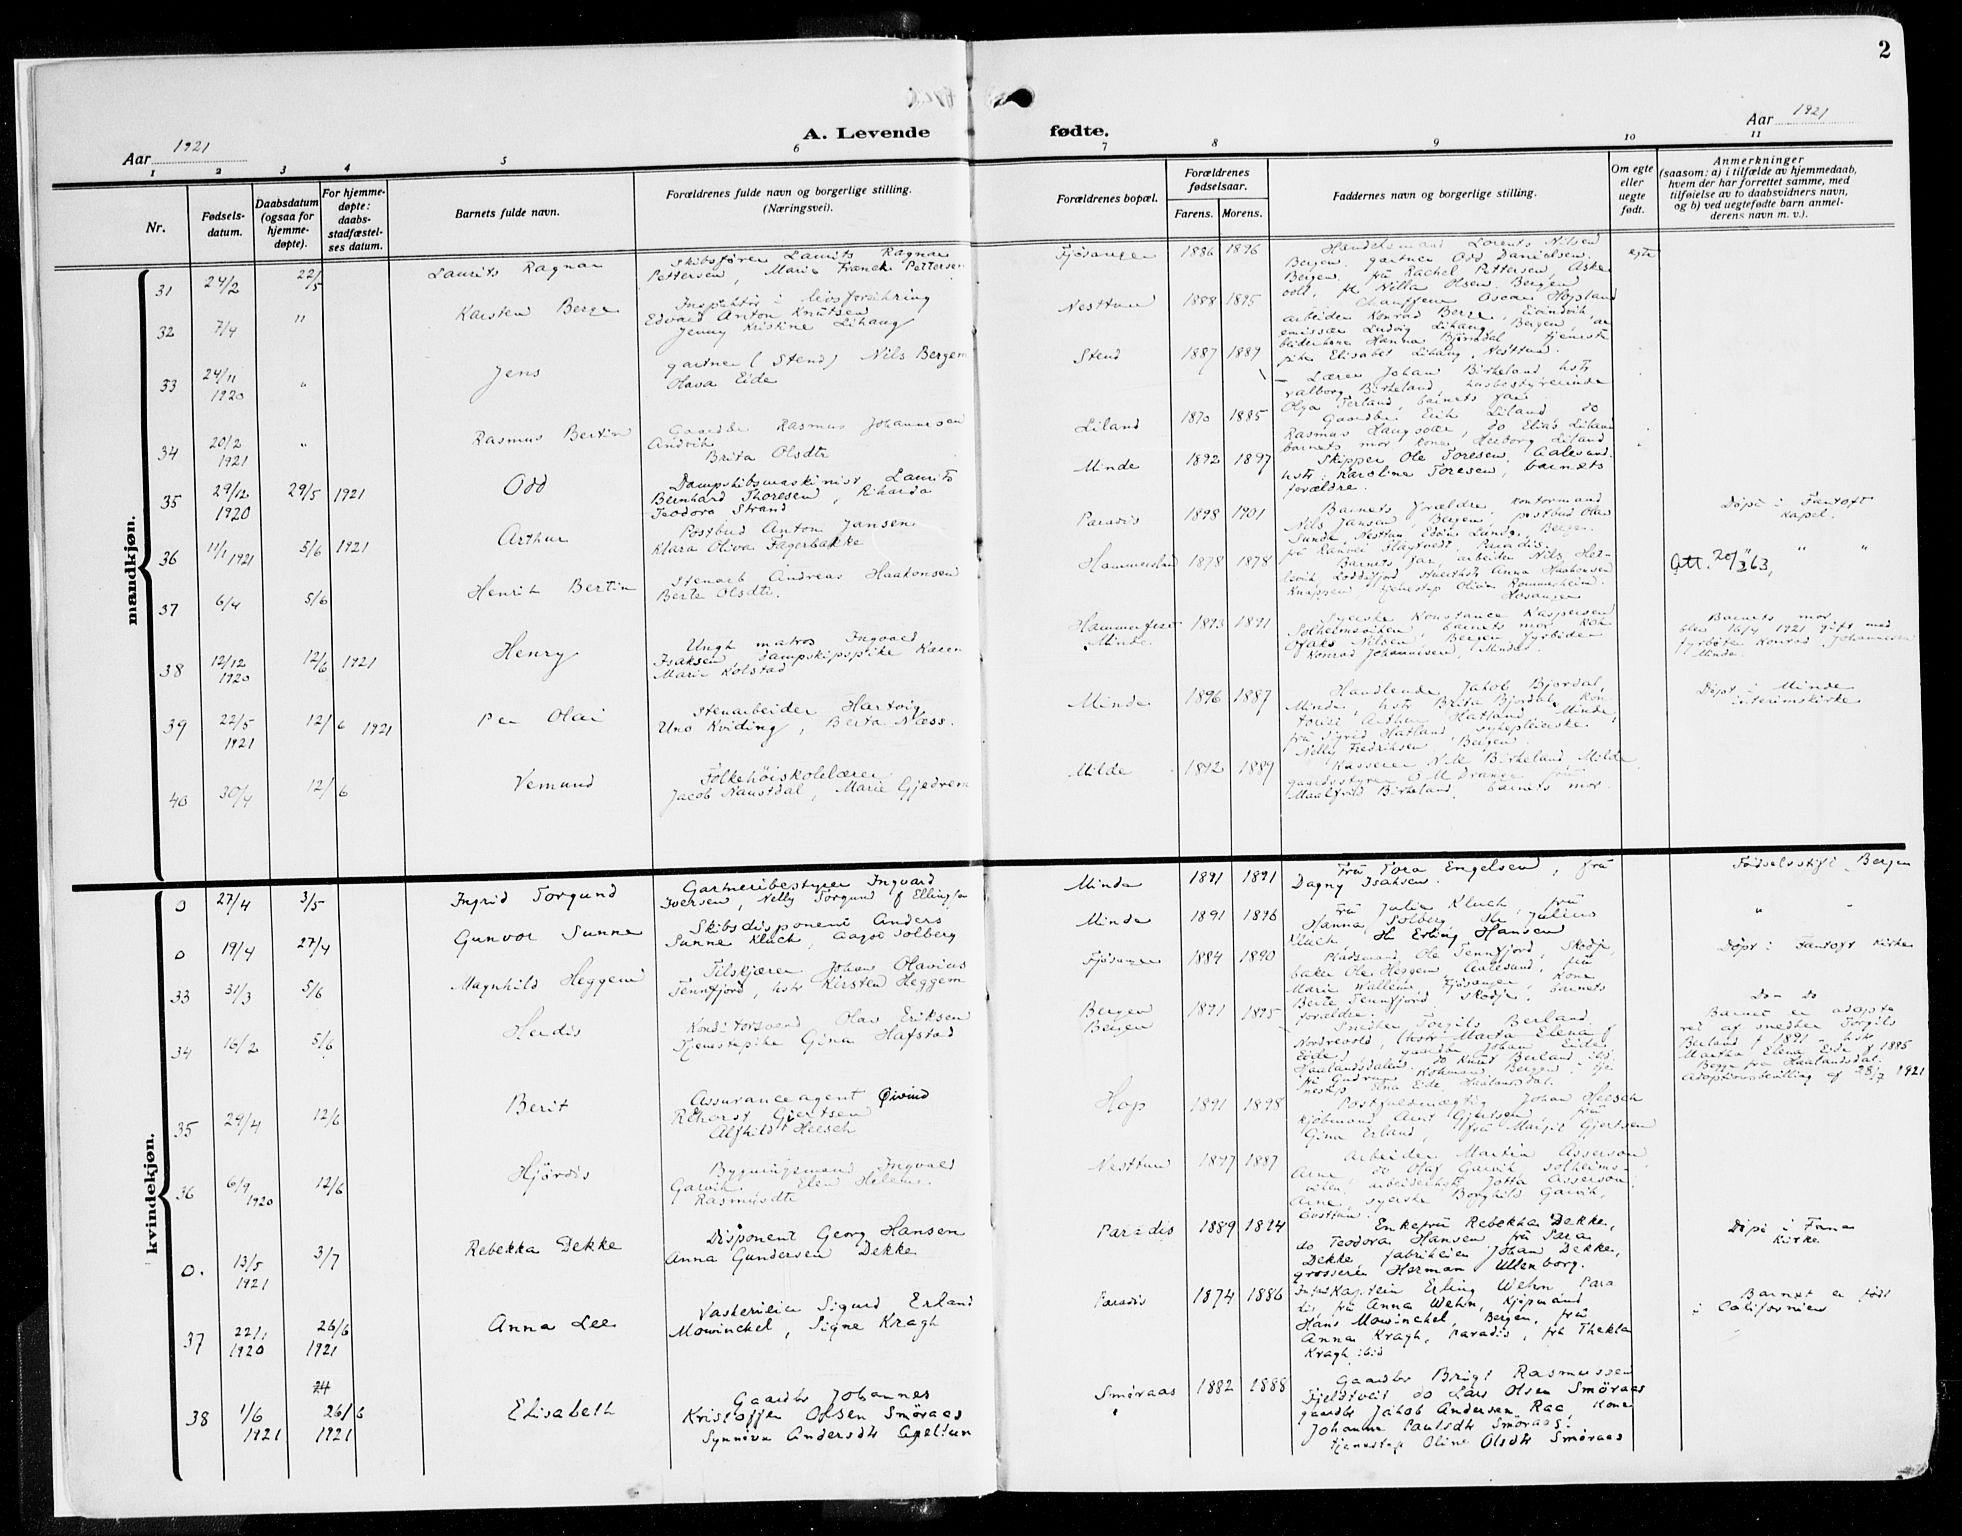 2
A. Levende fødte.
Aar 1921
Aar 1921
1 2 3 4 5 6 7 8 9 10 11
Nr.
Fødsels-
datum.
Daabsdatum
(ogsaa for
hjemme-
døpte).
For hjemme-
døpte:
daabs-
stadfæstel-
ses datum.
Barnets fulde navn.
Forældrenes fulde navn og borgerlige stilling.
(Næringsvei).
Forældrenes bopæl.
Forældrenes
fødselsaar.
Farens. Morens.
Faddernes navn og borgerlige stilling.
Om egte
eller
uegte
født.
Anmerkninger
(saasom: a) i tilfælde av hjemmedaab,
hvem der har forrettet samme, med
tilføielse av to daabsvidners navn,
og b) ved uegtefødte barn anmel-
derens navn m. v.).
mandkjøn.
31 24/2 22/5 Laurits Ragnar
Skibsfører Laurits Ragnar
Pettersen, Marie Franck Pettersen
Fjøsanger 1886 1896
Handelsmand Lorents Nilsen
Bergen. gartner Odd Danielsen.
Bergen. frk Rachel Pettersen, Aske
voll, frk Nilla Olsen. Bergen
egte
32 7/4 " Karsten Berge
Inspektør i livsforsikring
Edvard Anton Knutsen
Jenny Kristine Lihaug
Nesttun 1888 1895
Chauffeur Oscar Hopland
arbeider Konrad Berge, Eivindvik,
emissær Ludvig Lihaug, Bergen, ar
beiderkone Hanna Bjørndal, tjeneste
pike Elisabet Lihaug, Nesttun.
33 24/11 1920 " Jens
gartner (Stend) Nils Bergem
Olava Eide
Stend 1887 1889
Lærer Johan Birkeland, hstr
Valborg Birkeland, husbestyrerinde
Olga Terland, barnets far
34 20/2 1921 " Rasmus Bertin
Gaardbr Rasmus Johannesen
Andvik
Brita Olsdtr
Liland 1870 1885
Gaardbr. Erik Liland, do
Rasmus Haugsdær, do Elias Liland
barnets mor kone Herborg Liland
35 29/12 1920 29/5 1921 Odd
Dampskibsmaskinist Laurits
Bernhard Thoresen, Rikarda
Teodora Strand
Minde 1892 1897
Skipper Ole Toresen, Aalesund.
hstr. Karoline Toresen, barnets
forældre.
36 11/1 1921 5/6 1921 Arthur
Postbud Anton Jansen
Klara Oliva Fagerbakke
Paradis 1898 1901
Barnets forældre, kontormand
Nils Jansen, Bergen, postbud Olav
Sunde, Nesttun, Edvin Lunde, Bergen
frk Ranvei Flagtvedt, Paradis.
Døpt i Fantoft
Kapel.
37 6/4 5/6 Henrik Bertin
Stenarb Andreas Haakonsen
Berte Olsdtr.
Hammersland 1878 1878
Barnets far, arbeider Nils Hel-
levik, Loddefjord Anna Haakonsen
Knappen tjenestep Olivia Rommerheim.
Hosanger
" "
Att. 20/3 63,
38 12/12 1920 12/6 1921 Henry
Ungk matros Ingvald
Isaksen, dampskipspike Karen
Marie Kolstad
Hammerfest
Minde. 1893 1891
Syerske Konstance Kaspersen
Solheimsviken, barnets mor
Nilsen, Bergen, fyrbøder
Konrad Johannesen, Minde.
Barnets mor
blev 16/4 1921 gift med
fyrbøte Konrad Johannesen
Minde.
39 22/5 1921 12/6 1921 Per Olai
Stenarbeider Hartvig
Uno Kviding, Berta Næss.
Minde 1896 1887
Handlende Jakob Bjordal,
Minde, hstr Brita Bjordal, kon
torist Arthur Hatland, Minde,
fru Sigrid Hatland, sykepleierske
Nelly Fredriksen, Bergen
Døpt i Minde
interimskirke
40 30/4 12/6 Vemund
Folkehøiskolelærer
Jacob Naustdal, Marie Gjedrem
Milde 1892 1889
Kasserer N. M. Birkeland, Milde
gaardsstyrer O M Drange, frk
Maalfrid Birkeland, barnets mor.
kvindekjøn.
0 27/4 3/5 Ingrid Torgund
Gartneribestyrer Ingvard
Iversen, Nelly Torgund f Ellingsen
Minde 1891 1891
Fru Tora Engelsen, fru
Dagny Isaksen.
Fødselsstif. Bergen
0 19/4 27/4 Gunvor Sunne
Skibsdisponent Anders
Sunne Kluch, Aagot Solberg
Minde 1891 1896
Fru Julie Kluch, fru
Hanna Solberg, Hr Julius
Kluch, Hr Erling Hansen
" "
33 31/3 5/6 Magnhild Heggem
Tilskjærer Johan Olavius
Tennfjord, hstr Kirsten Heggem
Fjøsanger 1884 1890
Pladsmand Ole Tennfjord, Skodje,
baker Ole Heggem, Aalesund, fru
Marie Wallem, Fjøsanger, kone
Berte Tennfjord, Skodje, barnets
forældre.
Døpt i Fantoft kirke
34 16/2 5/6 Herdis
Konditorsvend Olav Eriksen
Tjenestepike Gina Hafstad
Bergen
Bergen 1891 1895
Smeder Torgils Berland
Nordrevold, (hstr Marta Elena f
Eide), gaardbr Johan Eide,
Haalandsdalen, do Knut Berland, ibd,
frk Gudrun Rohmand, Bergen, tje
nestep Elna Eide, Haalandsdal.
Do - Do
Barnet er adopte
ret af smedker Torgils
Berland f 1891 - hstr
Martha Elena Eide f 1885
Begge fra Haalandsdal.
Adoptionsbevilling af 28/7 1921
35 29/4 12/6 Berit
Assuranceagent Øivind
Rehorst Gjertsen
Alfhild Heesch
Hop 1891 1898
Postfuldmægtig Johan Heesch
Kjøbmand Arnt Gjertsen, fru
Gina Erland, fru Margit Gjertsen
36 6/9 1920 12/6 Hjørdis
Bygningsmand Ingvald
Garvik Elen Helene
Rasmusdtr
Nesttun 1897 1887
Arbeider Martin Asserson
Arne, do Olaf Garvik, Solheims-
viken, arbeiderhstr Jotta Asserson
Arne, syerske Borghild Garvik,
Nesttun
0. 13/5 1921 3/7 Rebekka Dekke
Disponent Georg Hansen
Anna Gundersen Dekke
Paradis 1889 1894
Enkefru Rebekka Dekke,
do Teodora Hansen fru Sara
Dekke, fabrikeier Johan Dekke,
grosserer Herman Ullenborg.
Døpt i Fana
Kirke
37 22/1 1920 26/6 1921 Anna Lee
Væskerieier Sigurd Erland
Mowinckel, Signe Kragh
Paradis 1874 1886
Inft Kaptein Erling Wehn Para
dis, fru Anna Wehn, kjøpmand
Hans Mowinckel, Bergen, fru
Anna Kragh, Paradis, frk Thekla
Kragh ibid
Barnet er født
i Californien
38 1/6 1921 24 26/6 1921 Elisabeth
Gaardbr Johannes
Kristoffer Olsen Smøraas
Synnøve Andersdtr Apeltun
Smøraas 1882 1888
Gaardbr Brigt Rasmussen
Fjeldtveit do Lars Olsen Smøraas
gaardbr Jakob Andersen Raa, kone
Johanne Paulsdtr Smøraas.
tjenestep Oline Olsdtr Smøraas